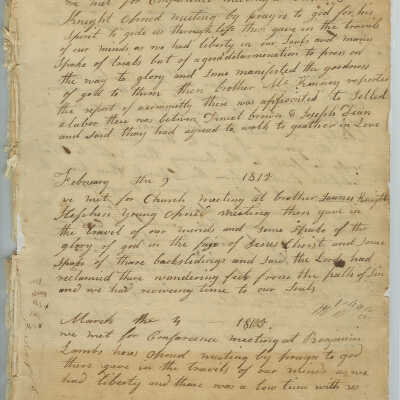 we met for Conferance meeting at
Knight opned meeting by prayer to god for his
Spirit to gide us through life then gave in the travel
of our minds as we had liberty in our Souls and many
Spake of trials but of a good determination to press on
the way to glory and Some manifested the goodness
of god to them then brother Mc Kinney reported
the report of a committy there was appointed to Settel
a labor there was between Daniel brown & Joseph Dean
and Said they had agreed to walk to geather in Love
February the 3 1813
we met for Church meeting at brother James Knight
Stephen Young opned meeting then gave in
the travel of our minds and Some Spake of the
glory of god in the face of Jesus Christ and Some
Spake of thare backslidings and Said the Lord had
reclamed thare wandering feet from the path of Sin
and we had reviveing time to our Souls
March the 4 1813
we met for Conferance meeting at Benjamin
Lambs hous opned meeting by prayer to god
then gave in the travels of our minds as we
had liberty and thare was a low time with us